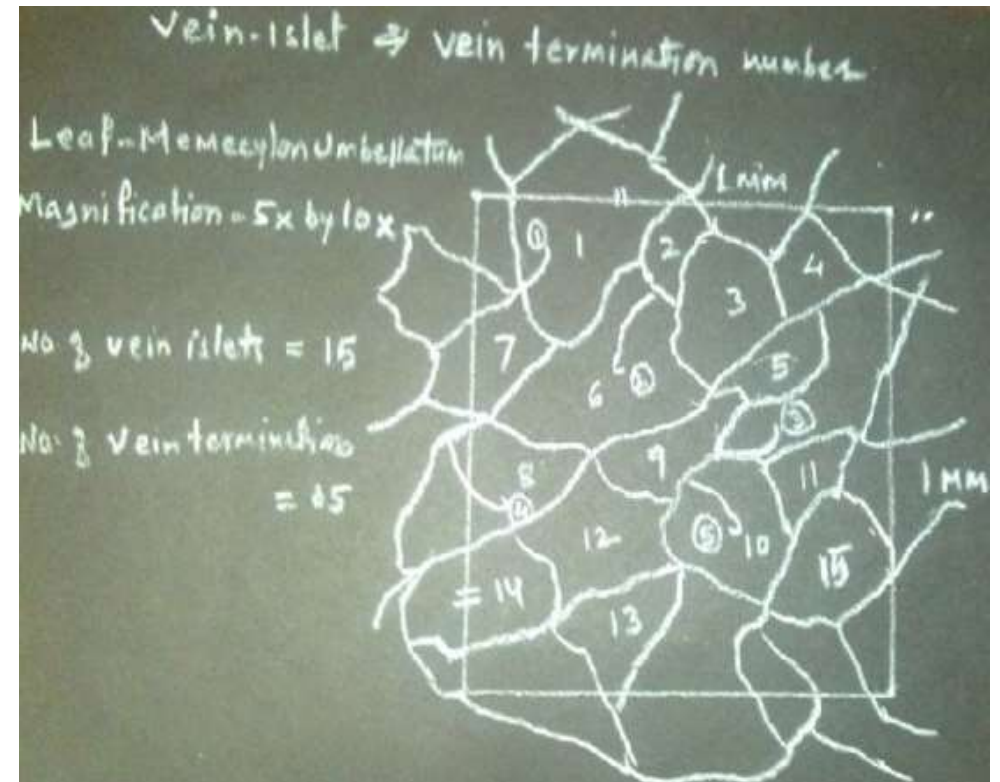 Vein-islet & vein termination number
Leaf-Memecylon Umbellatum
Magnification - 5x by 10x
1 MM
No of vein islets = 15
No of vein termination
= 05
1 MM
① 1 2 3 4
7 6 ② 5
③
8 9 11
④
12 ⑤ 10 15
= 14 13